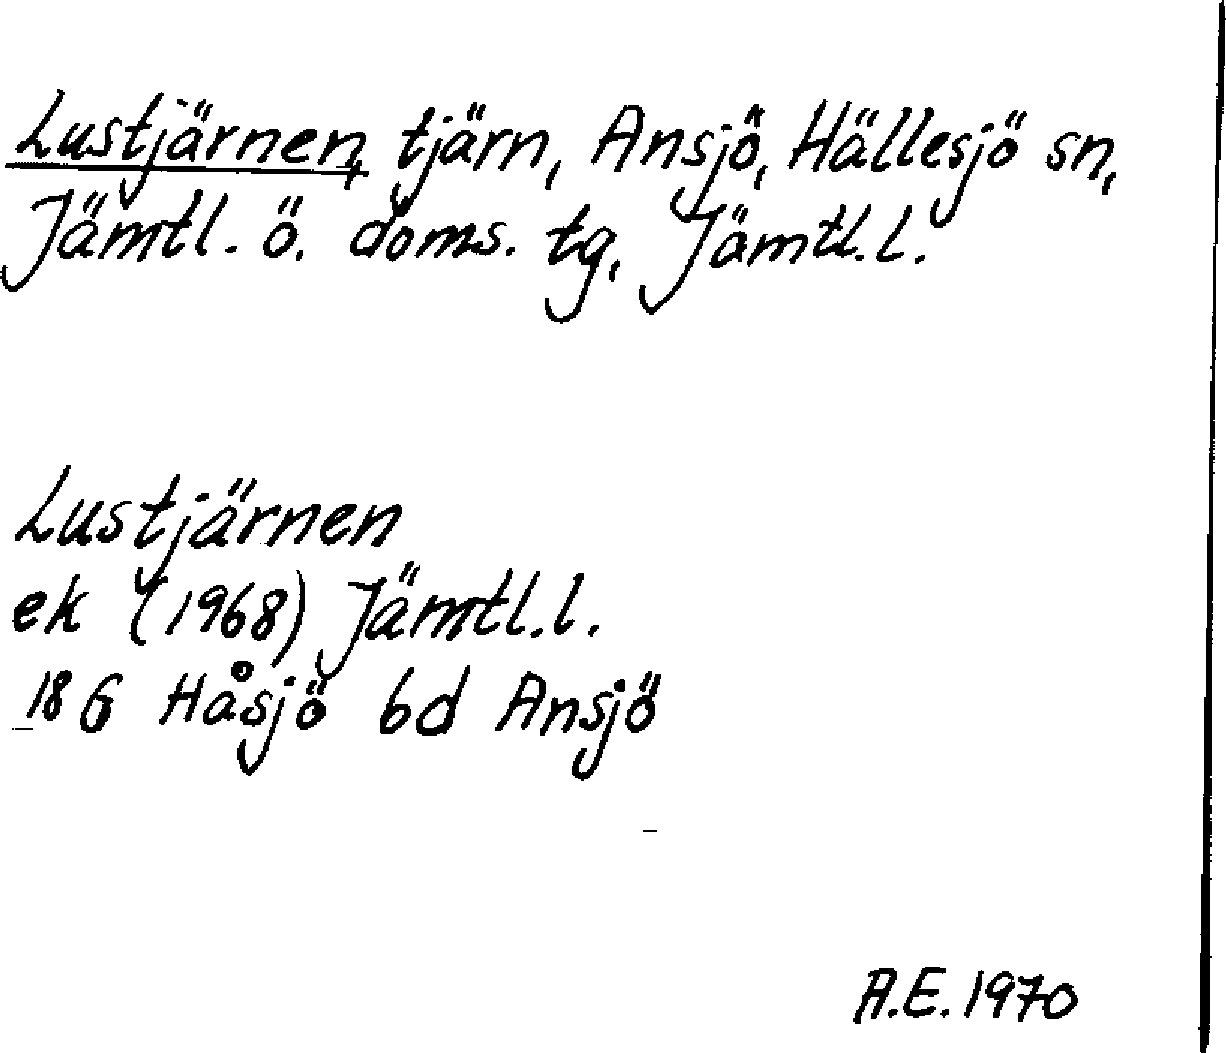 Lustjärnen, tjärn, Ansjö, Hällesjö sn,
Jämtl. ö. doms. tg, Jämtl.l.
Lustjärnen
ek (1968) Jämtl.l.
18 G Håsjö 6d Ansjö
A.E. 1970